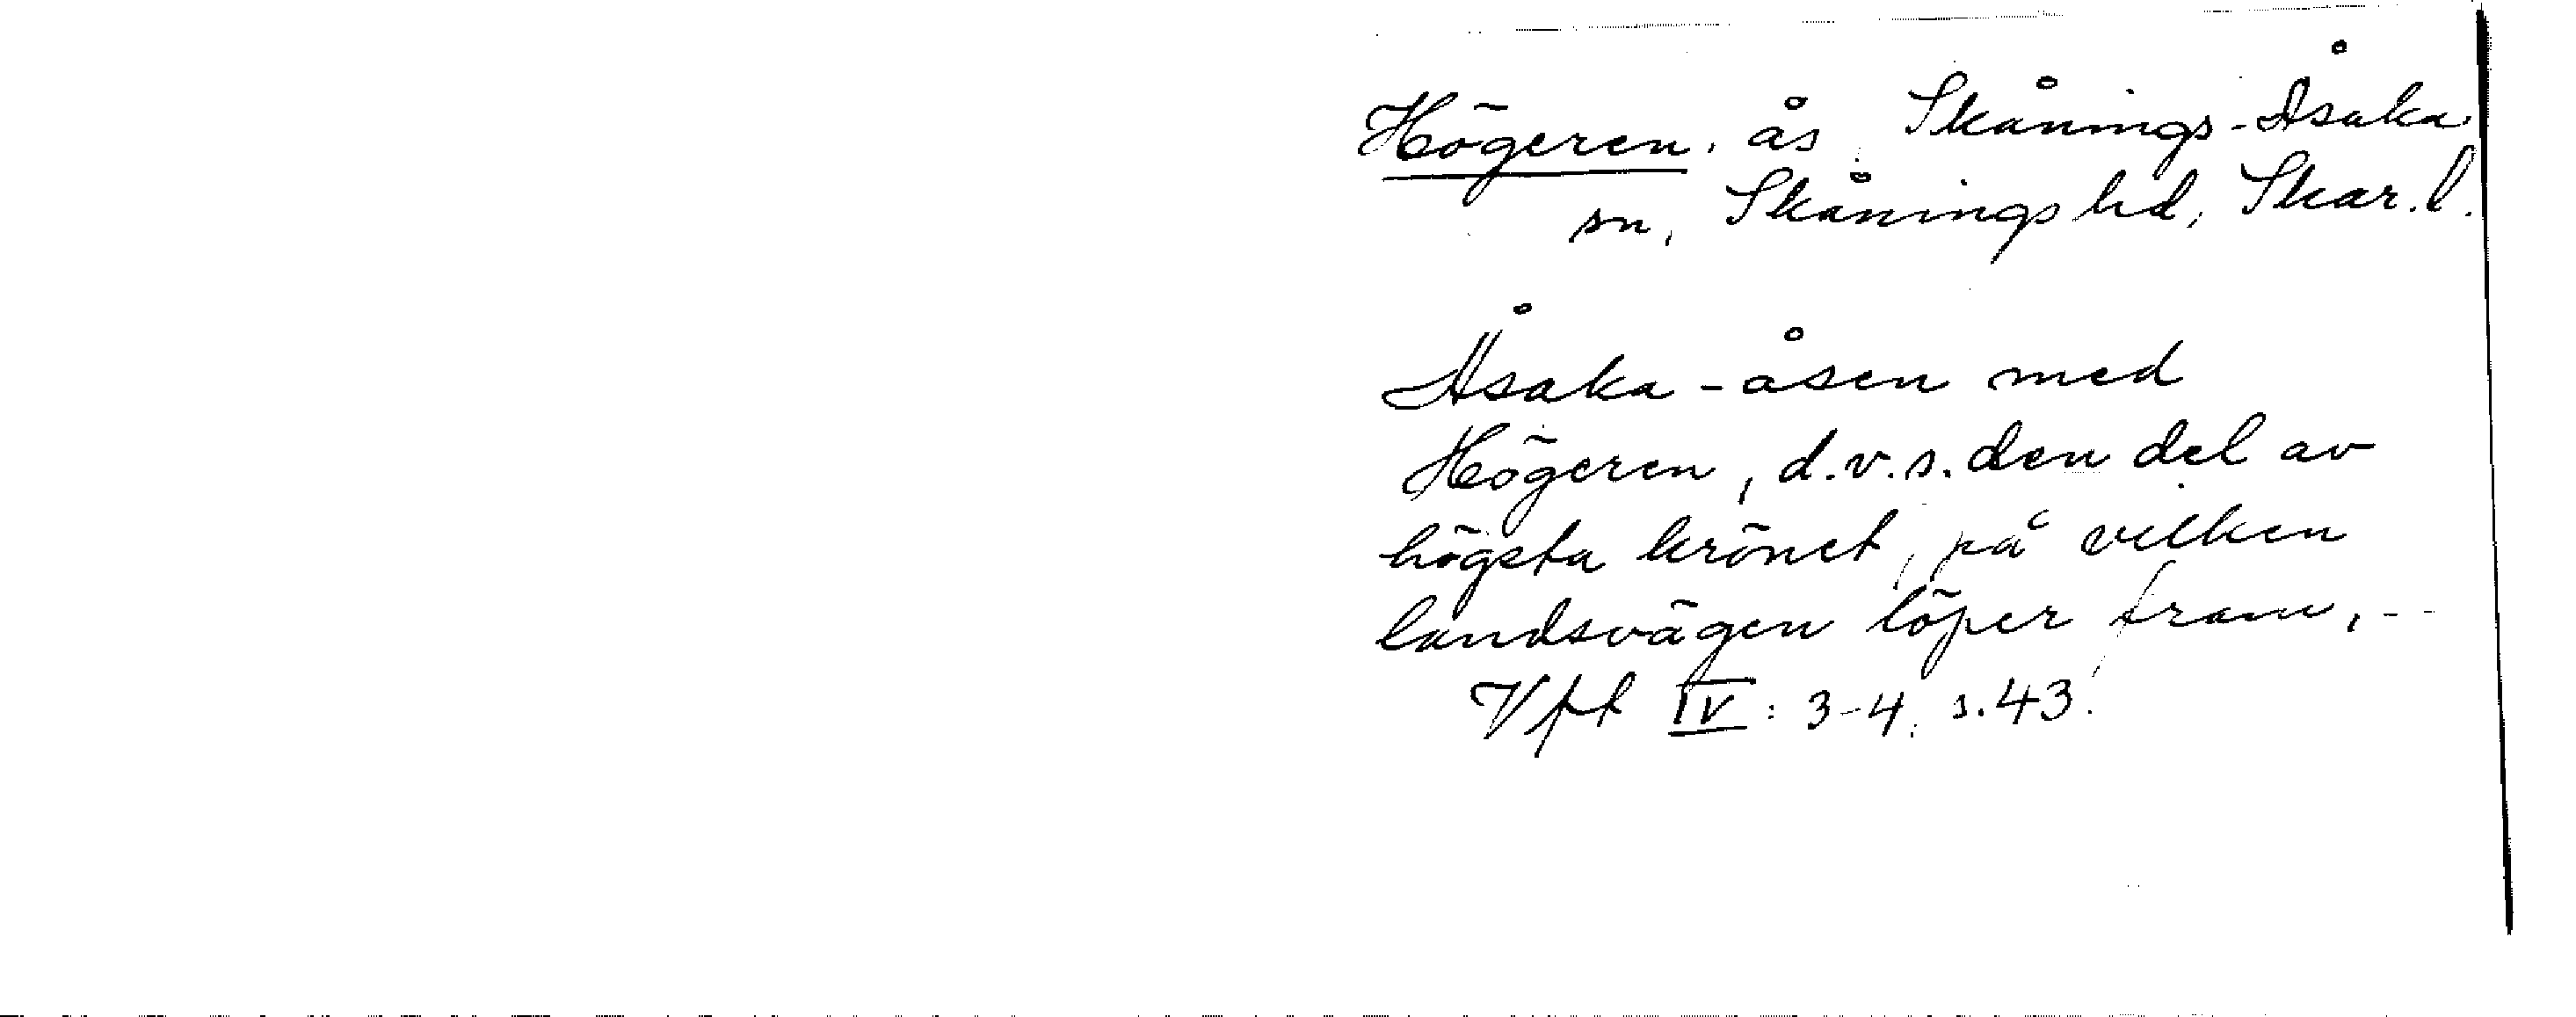 Högeren, ås, Skånings-Åsaka
sn, Skånings hd, Skar. l.
Åsaka-åsen med
Högeren, d.v.s. den del av
högsta krönet, på vilken
landsvägen löper fram, --
Vft IV: 3-4, s. 43.